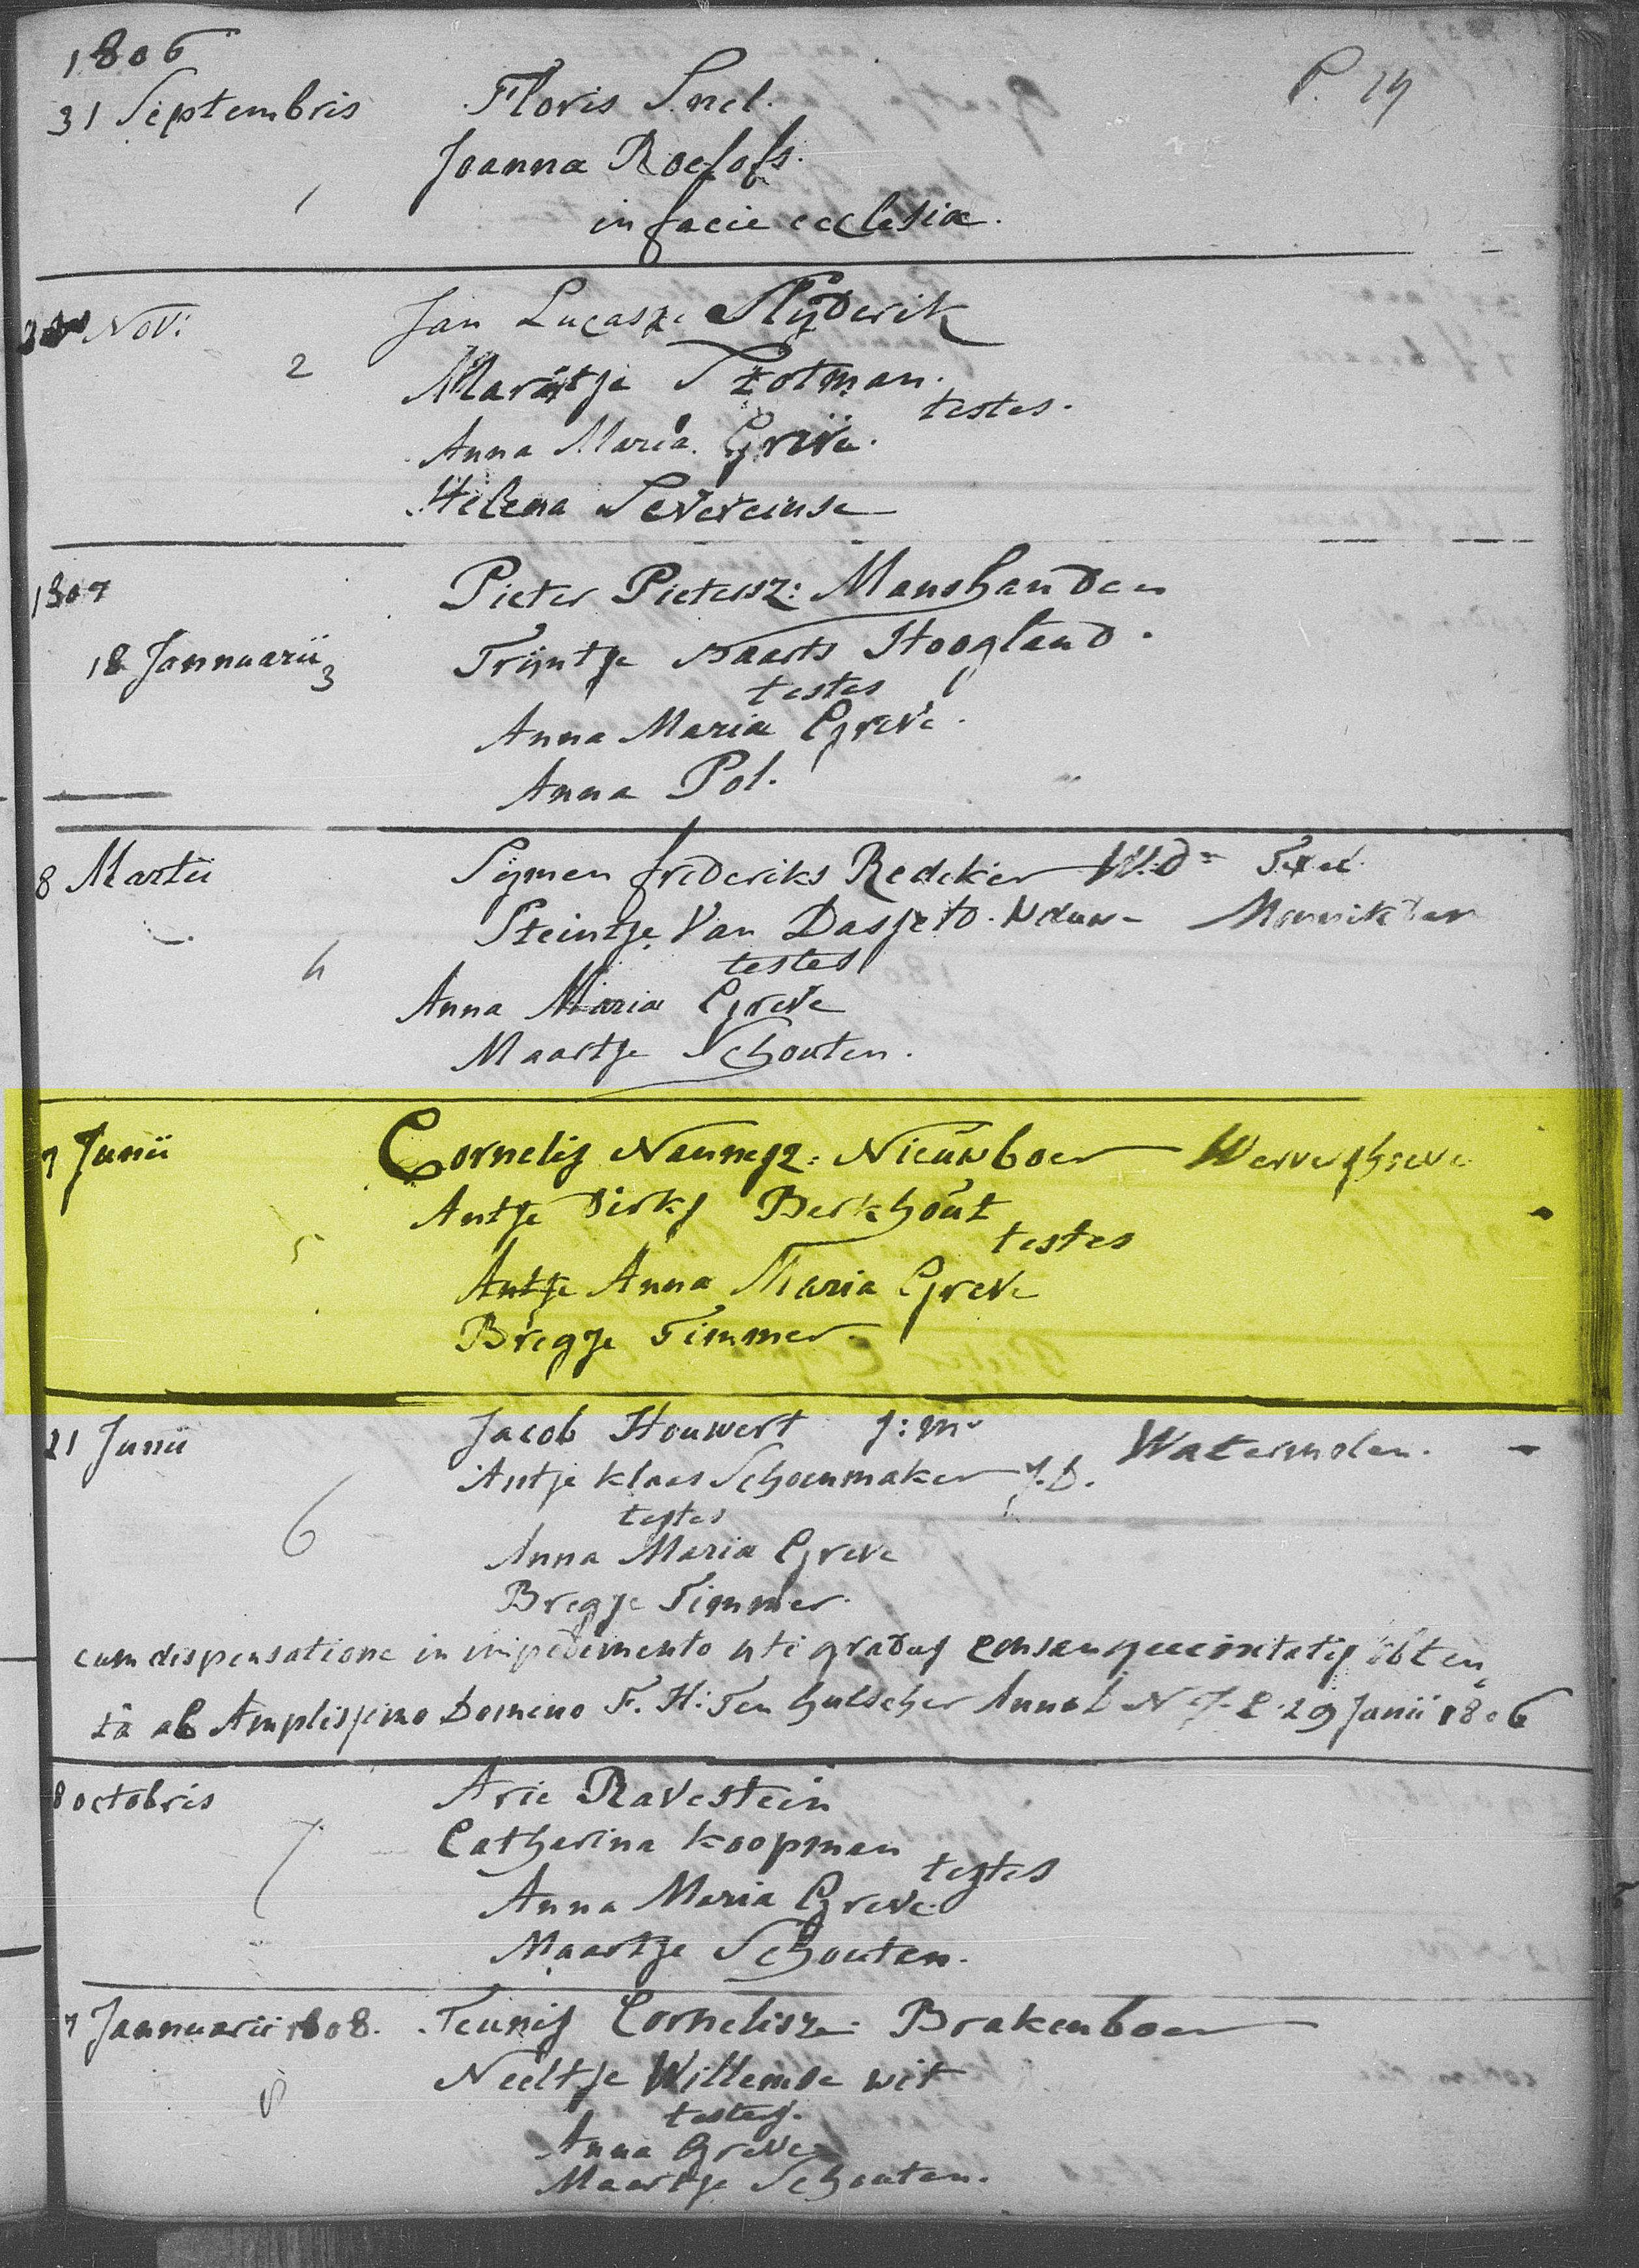 1806
P. 19
31 Septembris Floris Snel.
Joanna Roelofs.
1 in facie ecclesiæ.
Nov: Jan Lucasz. Slÿderik
2 Marÿtje Stotman.
testes.
Anna Maria Greve.
Helena Severeinse
1807 Pieter Pietersz: Manshanden
18 Jannuarii 3 Trÿntje Baarts Hoogland.
testes
Anna Maria Greve.
Anna Pol.
8 Martii Sÿmen frederiks Redeker W.d= Texel
Steintje Van Dasjeto. Monnikdam
4 testes
Anna Maria Greve
Maartje Schouten.
7 Junii Cornelis Nannesz: Nieuwboer Wervershoeve
Antje Dirks Berkhout
5 testes
Antje Anna Maria Greve
Bregje Timmer
21 Junii Jacob Houwert J:m. Watermolen.
Antje klaas Schoenmaker J.D.
testes
6 Anna Maria Greve
Bregje Timmer.
cum dispensatione in impedimento 4ti gradus consanguinitatis obten
ta ab Amplissimo Domino F. H. Ten hulscher 29 Junii 1806
8 octobris Arie Ravestein
7 Catharina koopman
testes
Anna Maria Greve
Maartje Schouten.
7 Jannuarii 1808. Teunis Cornelisze. Brakenboer
8 Neeltje Willemse wit
testes.
Anna Greve
Maartje Schouten.